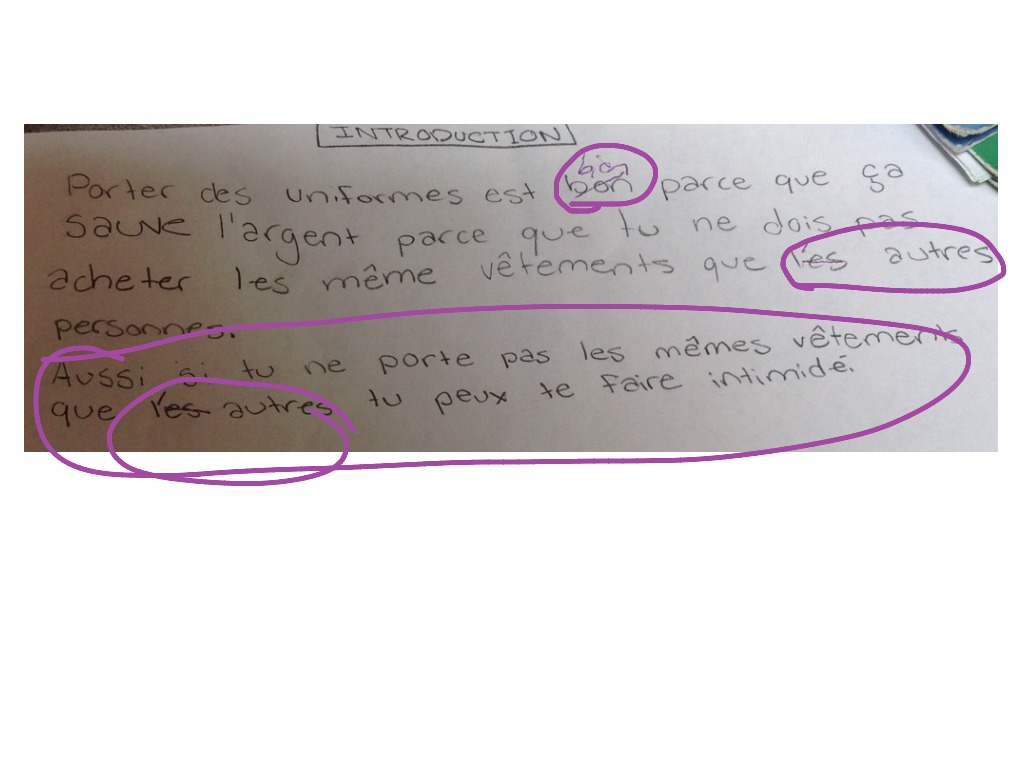 INTRODUCTION
bien
Porter des uniformes est bon parce que ça
sauve l'argent parce que tu ne dois pas
acheter les même vêtements que les autres
personnes.
Aussi si tu ne porte pas les mêmes vêtements
que les autres tu peux te faire intimidé.